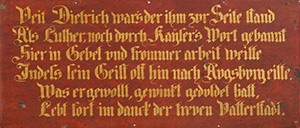 Veit Dietrich war's der ihm zur Seite stand
Als Luther, noch durch Kaysers Wort gebannt
Hier in Gebet und frommer arbeit weilte
Indess sein Geist oft hin nach Augsburg eilte.
Was er gewollt, gewirkt geduldet hatt,
Lebt fort im danck der treven Vatterstadt.